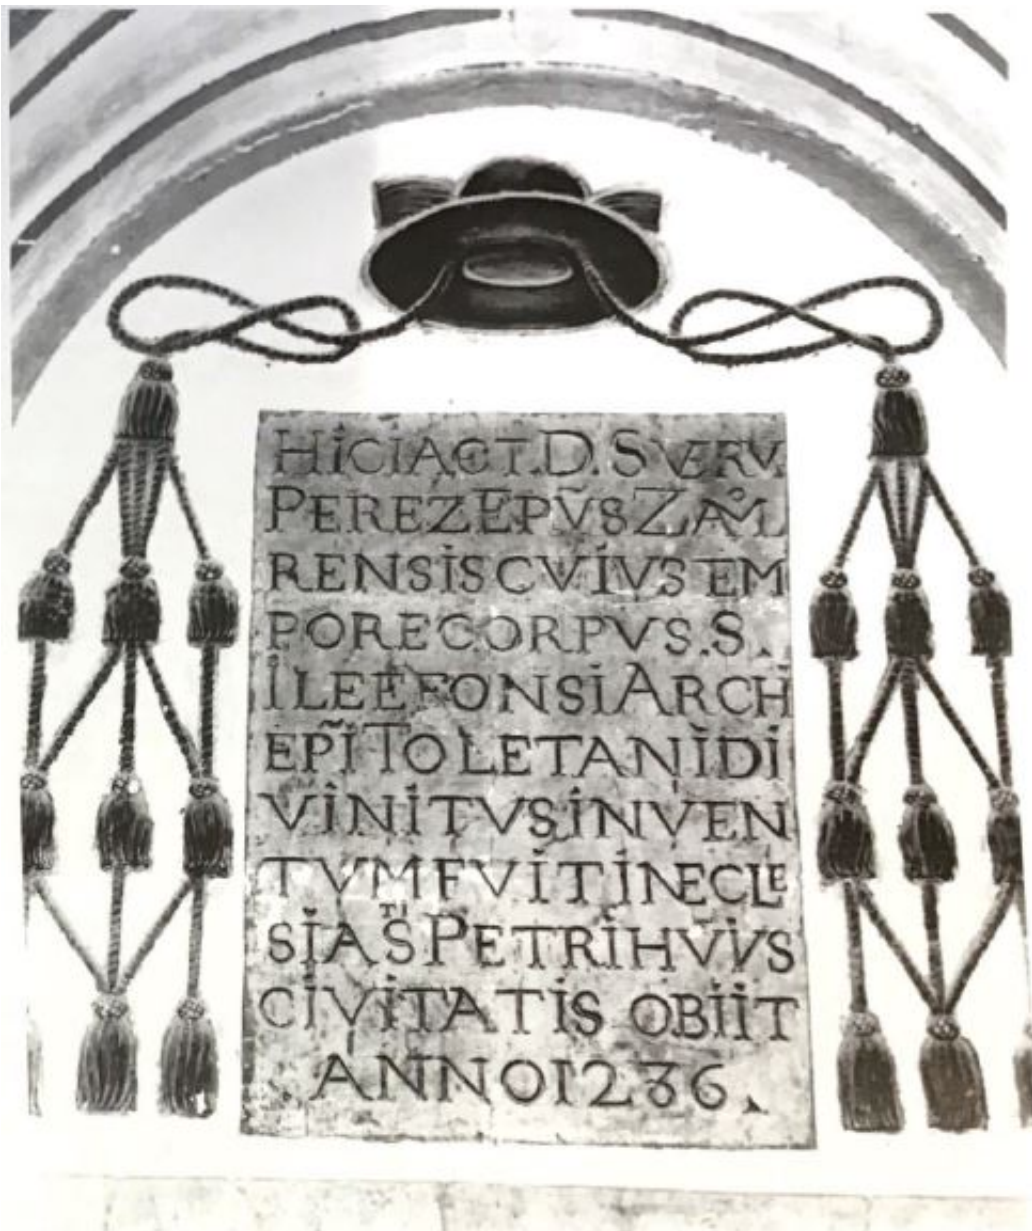 HICIACET.D.SVERV
PEREZ EPṼS ZAMO
RENSIS CVIVS TEM
PORE CORPVS.S.
ILEFFONSI ARCH
EPĨ TOLETANI DI
VINITVS INVEN
TVM FVIT IN ECLE
SIA S̃TI PETRI HVIVS
CIVITATIS OBIIT
ANNO 1286.